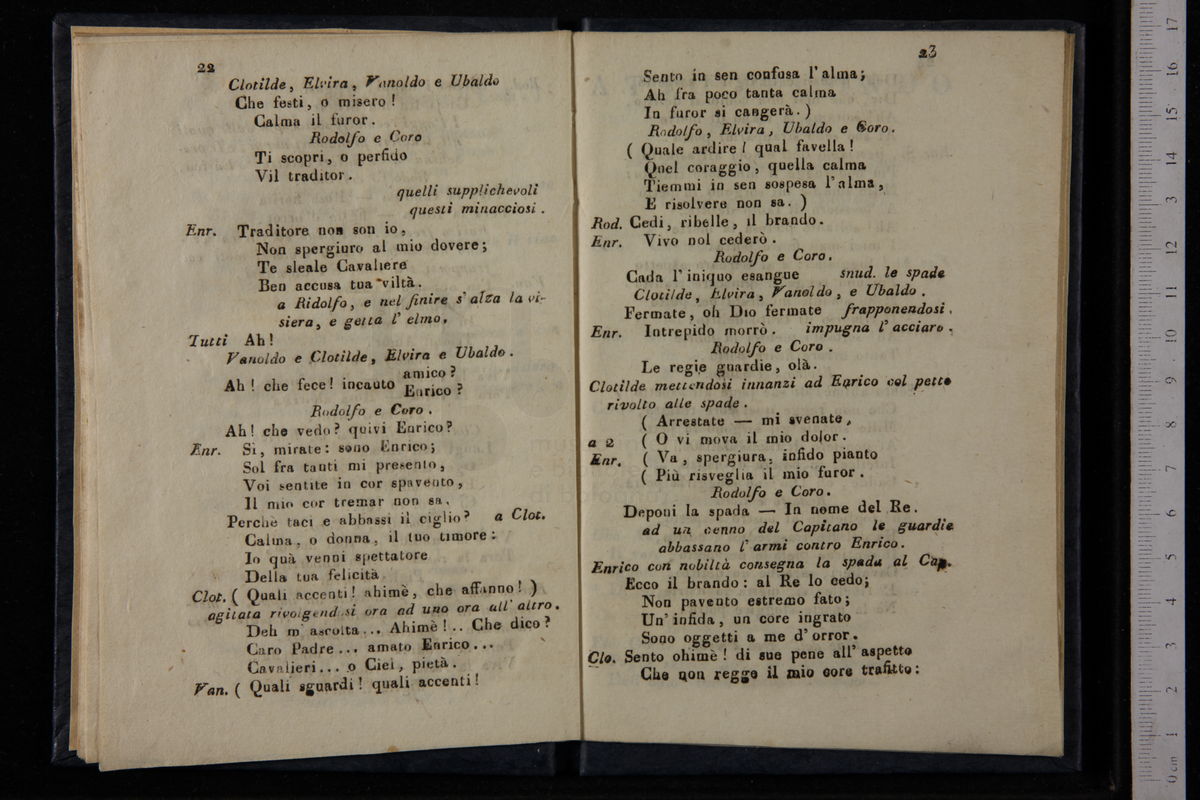 22
Clotilde, Elvira, Vanoldo e Ubaldo
Che festi, o misero!
Calma il furor.
Rodolfo e Coro
Ti scopri, o perfido
Vil traditor.
quelli supplichevoli
questi minacciosi.
Enr. Traditore non son io,
Non spergiuro al mio dovere;
Te sleale Cavaliere
Ben accusa tua viltà.
a Ridolfo, e nel finire s'alza la vi-
siera, e getta l'elmo.
Tutti Ah!
Vanoldo e Clotilde, Elvira e Ubaldo.
Ah! che fece! incauto amico?
Enrico?
Rodolfo e Coro.
Ah! che vedo? quivi Enrico?
Enr. Si, mirate: sono Enrico;
Sol fra tanti mi presento,
Voi sentite in cor spavento,
Il mio cor tremar non sa.
Perchè taci e abbassi il ciglio? a Clot.
Calma, o donna, il tuo timore:
Io quà venni spettatore
Della tua felicità
Clot. ( Quali accenti! ahimè, che affanno! )
agitata rivolgendosi ora ad uno ora all'altro.
Deh m'ascolta... Ahimè!.. Che dico?
Caro Padre... amato Enrico...
Cavalieri... o Ciel, pietà.
Van. ( Quali sguardi! quali accenti!
23
Sento in sen confusa l'alma;
Ah fra poco tanta calma
In furor si cangerà. )
Rodolfo, Elvira, Ubaldo e Coro.
( Quale ardire! qual favella!
Quel coraggio, quella calma
Tiemmi in sen sospesa l'alma,
E risolvere non sa. )
Rod. Cedi, ribelle, il brando.
Enr. Vivo nol cederò.
Rodolfo e Coro.
Cada l'iniquo esangue snud. le spade
Clotilde, Elvira, Vanoldo, e Ubaldo.
Fermate, oh Dio fermate frapponendosi.
Enr. Intrepido morrò. impugna l'acciaro.
Rodolfo e Coro.
Le regie guardie, olà.
Clotilde mettendosi innanzi ad Enrico col petto
rivolto alle spade.
( Arrestate — mi svenate,
a 2 ( O vi mova il mio dolor.
Enr. ( Va, spergiura, infido pianto
( Più risveglia il mio furor.
Rodolfo e Coro.
Deponi la spada — In nome del Re.
ad un cenno del Capitano le guardie
abbassano l'armi contro Enrico.
Enrico con nobiltà consegna la spada al Cap.
Ecco il brando: al Re lo cedo;
Non pavento estremo fato;
Un'infida, un core ingrato
Sono oggetti a me d'orror.
Clo. Sento ohimè! di sue pene all'aspetto
Che non regge il mio core trafitto:
0 cm 1 2 3 4 5 6 7 8 9 10 11 12 13 14 15 16 17